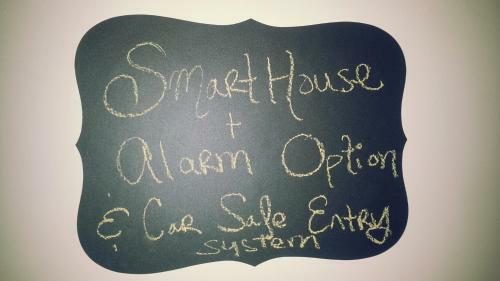 Smart House
+
Alarm Option
& Car Safe Entry
system